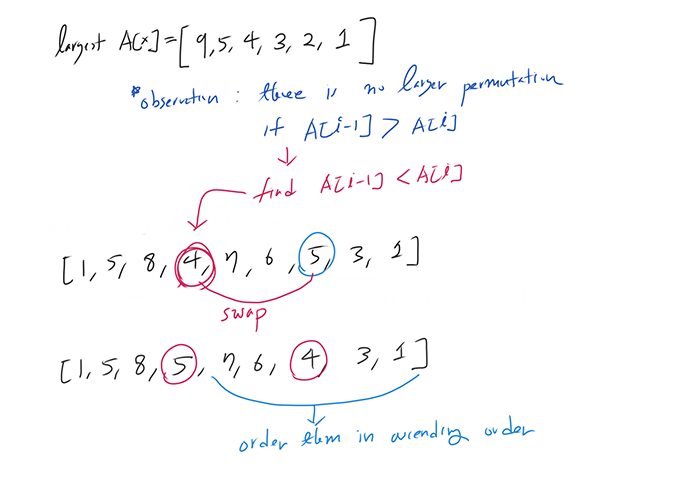 largest A[x]=[9,5, 4, 3, 2, 1]
*observation : there is no larger permutation
if A[i-1] > A[i]
find A[i-1] < A[i]
[1, 5, 8, 4, 7, 6, 5, 3, 1]
swap
[1, 5, 8, 5, 7, 6, 4 3, 1]
order them in ascending order